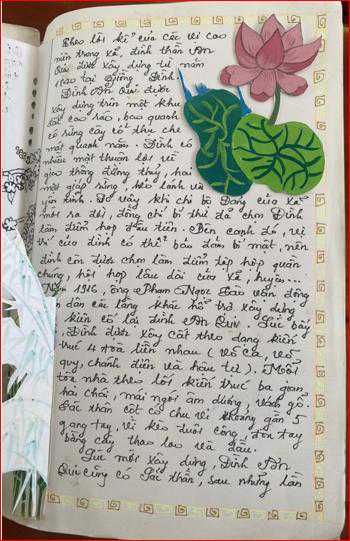 Theo lời kể của các vị cao
niên trong xã, đình thần An
Qui được xây dựng từ năm
nào tại Giồng Đình.
Đình An Qui được
xây dựng trên một khu
đất cao ráo, bao quanh
có rừng cây cổ thụ che
mát quanh năm. Đình có
nhiều mặt thuận lợi về
giao thông đường thủy, hai
mặt giáp sông, hẻo lánh và
yên tĩnh. Do vậy khi chi bộ Đảng của xã
mới ra đời, đồng chí bí thư đã chọn Đình
làm điểm họp đầu tiên. Bên cạnh đó, vị
trí của đình có thể bảo đảm bí mật, nên
đình còn được chọn làm điểm tập hợp quần
chúng, hội họp lâu dài của xã, huyện...
Năm 1916, ông Phạm Ngọc Báo vận động
dân các làng khác hỗ trợ xây dựng
kiên cố lại đình An Qui. Lúc bấy
Đình được xây cất theo dạng kiến
trúc 4 tòa liền nhau (võ ca, võ
quy, chánh điện và hậu tự). Mỗi
tòa nhà theo lối kiến trúc ba gian
hai chái, mái ngói âm dương, vách gỗ.
Các thân cột có chu vi khoảng gần 5
gang tay, vì kèo đuôi cong, đòn tay
bằng cây thao lao và dầu.
Lúc mới xây dựng, Đình An
Qui cũng có Sắc thần, sau những lần